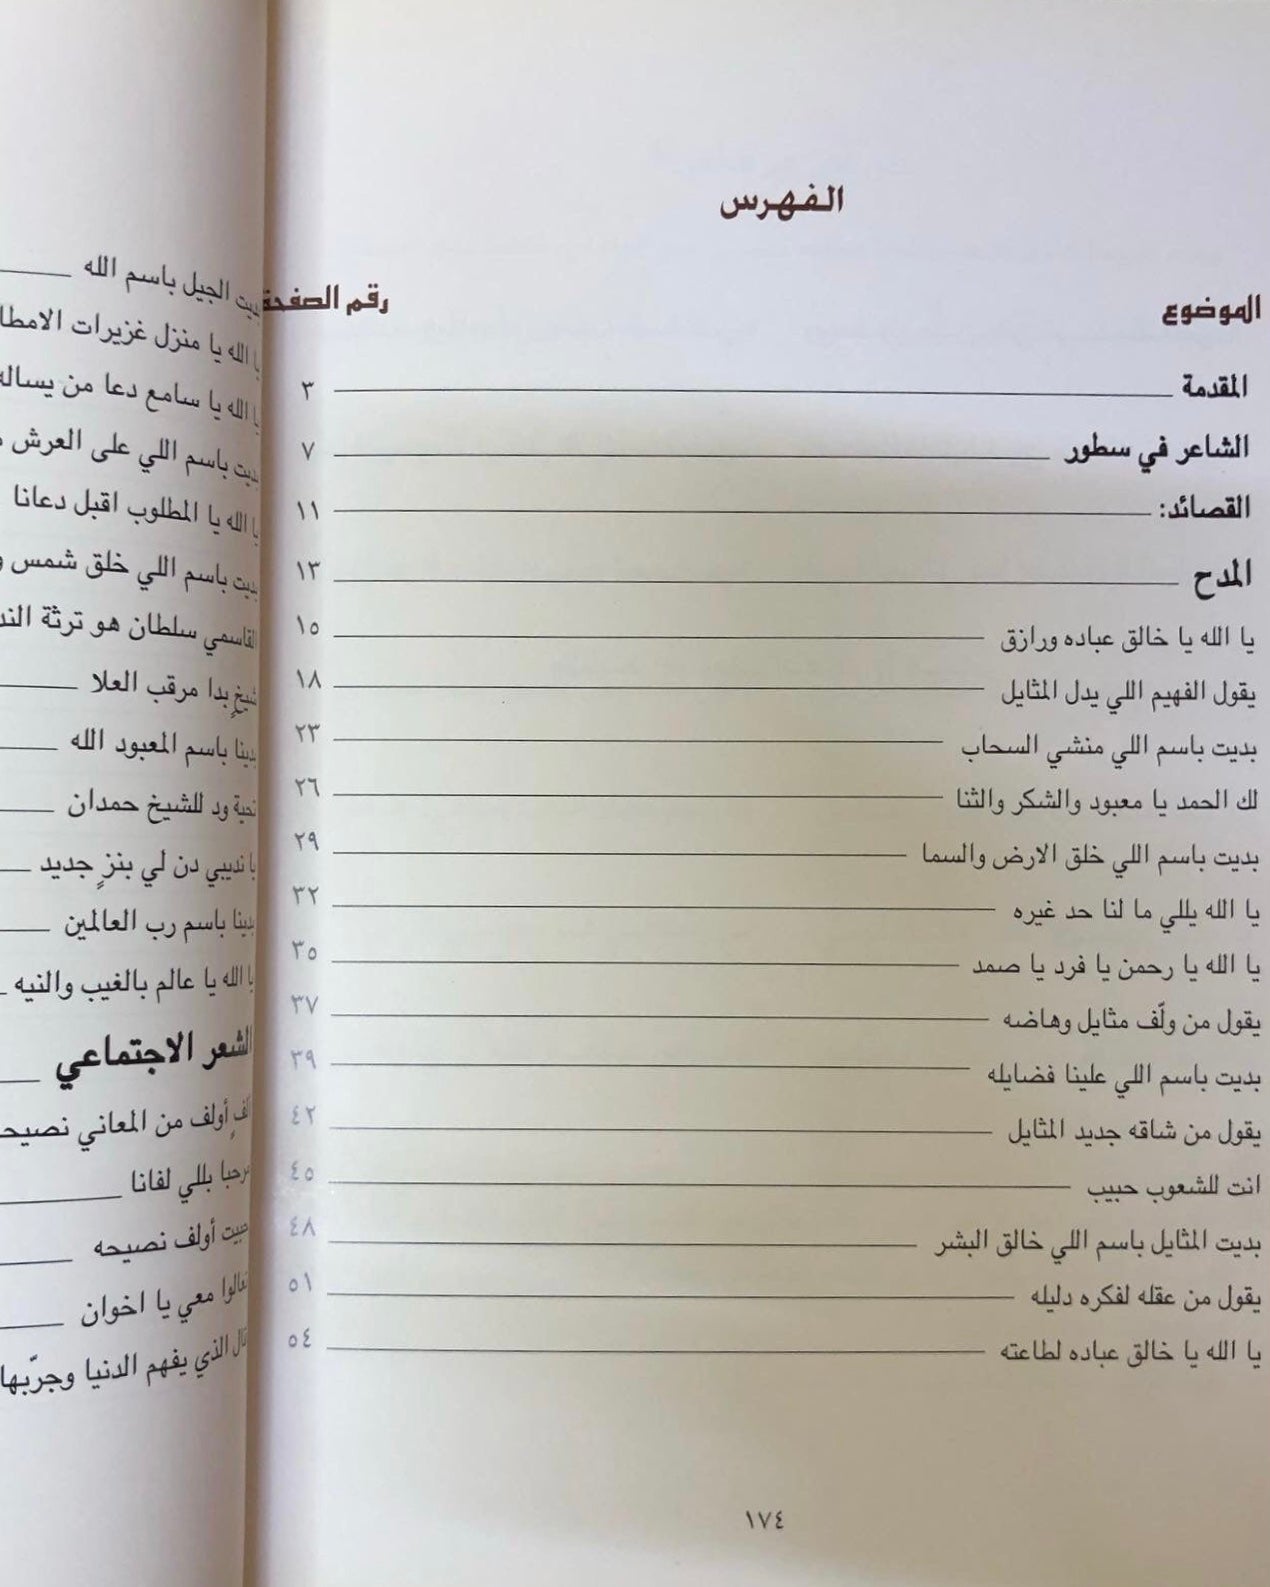 الفهرس
الموضوع رقم الصفحة
المقدمة ٣
الشاعر في سطور ٧
القصائد: ١١
المدح ١٣
يا الله يا خالق عباده ورازق ١٥
يقول الفهيم اللي يدل المثايل ١٨
بديت باسم اللي منشي السحاب ٢٣
لك الحمد يا معبود والشكر والثنا ٢٦
بديت باسم اللي خلق الارض والسما ٢٩
يا الله يللي ما لنا حد غيره ٣٢
يا الله يا رحمن يا فرد يا صمد ٣٥
يقول من ولّف مثايل وهاضه ٣٧
بديت باسم اللي علينا فضايله ٣٩
يقول من شاقه جديد المثايل ٤٢
انت للشعوب حبيب ٤٥
بديت المثايل باسم اللي خالق البشر ٤٨
يقول من عقله لفكره دليله ٥١
يا الله يا خالق عباده لطاعته ٥٤
١٧٤
بديت الجيل باسم الله
يا الله يا منزل غزيرات
يا الله يا سامع دعا من
بديت باسم اللي على العرش
يا الله يا المطلوب اقبل دعانا
بديت باسم اللي خلق شمس
القاسمي سلطان هو ترثة
شيخٍ بدا مرقب العلا
بدينا باسم المعبود الله
تحية ود للشيخ حمدان
يا نديبي دن لي بنزٍ جديد
بدينا باسم رب العالمين
يا الله يا عالم بالغيب والنيه
الشعر الاجتماعي
أولف من المعاني
مرحبا بللي لفانا
حبيت أولف نصيحه
تعالوا معي يا اخوان
قال الذي يفهم الدنيا وجرّبها